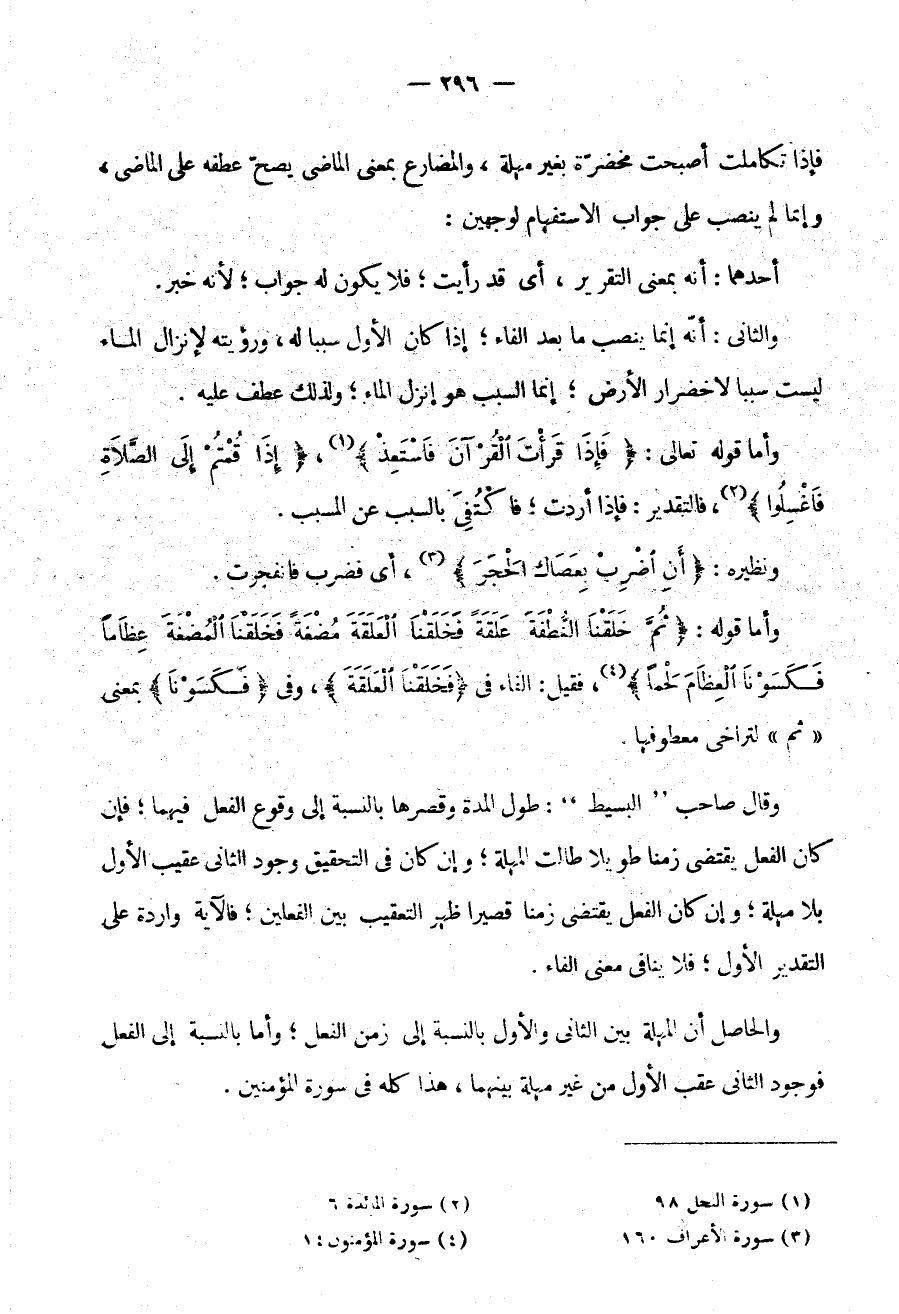 — ٢٩٦ —
فإذا تكاملت أصبحت مخضرّة بغير مهلة ، والمضارع بمعنى الماضى يصحّ عطفه على الماضى ،
وإنما لم ينصب على جواب الاستفهام لوجهين :
أحدهما : أنه بمعنى التقرير ، أى قد رأيت ؛ فلا يكون له جواب ؛ لأنه خبر .
والثانى : أنّه إنما ينصب ما بعد الفاء ؛ إذا كان الأول سببا له ، ورؤيته لإنزال المـاء
ليست سببا لاخضرار الأرض ؛ إنما السبب هو إنزل الماء ؛ ولذلك عطف عليه .
وأما قوله تعالى : ﴿ فَإِذَا قَرَأْتَ ٱلْقُرْآنَ فَاسْتَعِذْ ﴾(١) ، ﴿ إِذَا قُمْتُمْ إِلَى الصَّلَاةِ
فَاغْسِلُوا ﴾(٢) ، فالتقدير : فإذا أردت ؛ فاكْتُفِىَ بالسبب عن المسبب .
ونظيره : ﴿ أَنِ ٱضْرِبْ بِعَصَاكَ الْحَجَرَ ﴾ (٣) ، أى فضرب فانفجرت .
وأما قوله : ﴿ ثُمَّ خَلَقْنَا النُّطْفَةَ عَلَقَةً فَخَلَقْنَا ٱلْعَلَقَةَ مُضْغَةً فَخَلَقْنَا ٱلْمُضْغَةَ عِظَاماً
فَـكَسَوْنَا ٱلْعِظَامَ لَحْماً ﴾(٤) ، فقيل : الفاء فى ﴿فَخَلَقْنَا ٱلْعَلَقَةَ ﴾ ، وفى ﴿ فَـكَسَوْنَا ﴾ بمعنى
« ثم » لتراخى معطوفها .
وقال صاحب ” البسيط “ : طول المدة وقصرها بالنسبة إلى وقوع الفعل فيهما ؛ فإن
كان الفعل يقتضى زمنا طويلا طالت المهلة ؛ وإن كان فى التحقيق وجود الثانى عقيب الأول
بلا مهلة ؛ وإن كان الفعل يقتضى زمنا قصيرا ظهر التعقيب بين الفعلين ؛ فالآية واردة على
التقدير الأول ؛ فلا ينافى معنى الفاء .
والحاصل أن المهلة بين الثانى والأول بالنسبة إلى زمن الفعل ؛ وأما بالنسبة إلى الفعل
فوجود الثانى عقب الأول من غير مهلة بينهما ، هذا كله فى سورة المؤمنين .
(١) سورة النحل ٩٨ (٢) سورة المائدة ٦
(٣) سورة الأعراف ١٦٠ (٤) سورة المؤمنون ١٤